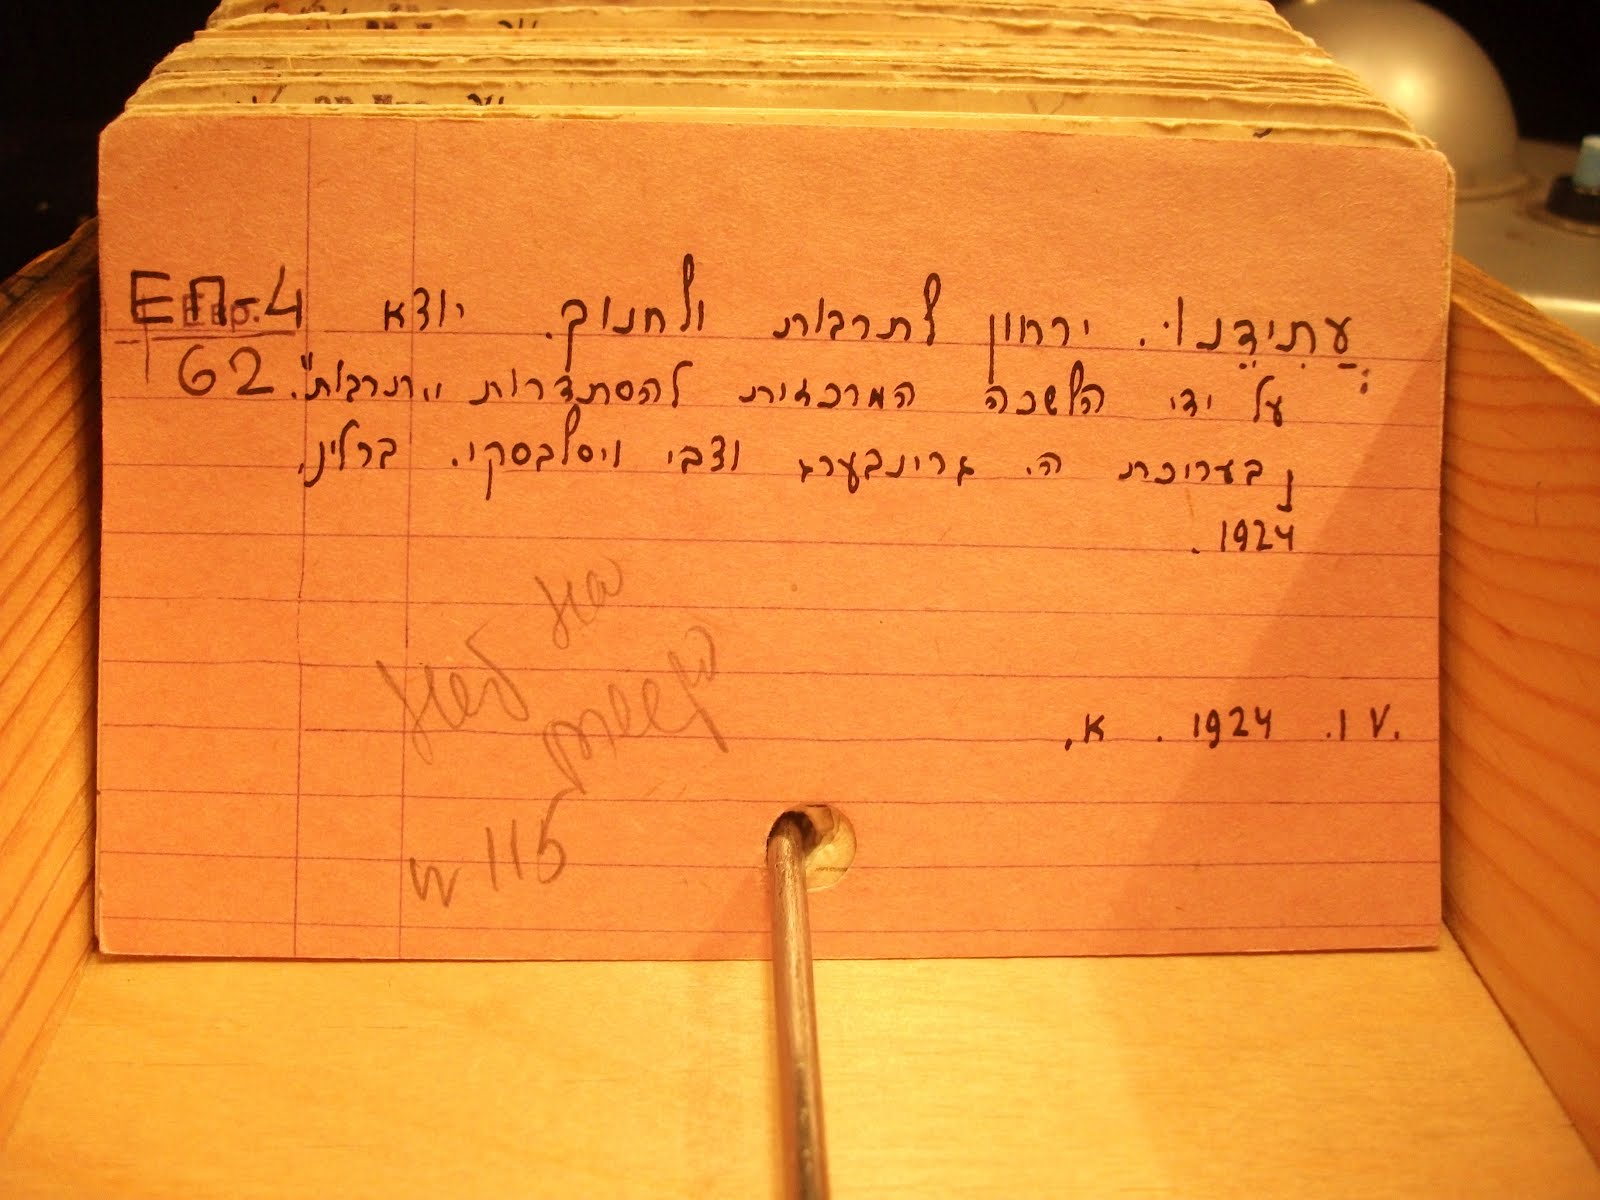 עֲתִידֵנוּ. ירחון לתרבות ולחנוך. יוצא
על ידי הלשכה המרכזית להסתדרות „תרבות".
בעריכת ה. גרינבערג וצבי ויסלבסקי. ברלין,
1924.
ЕП-4
62
V I. 1924. א,
115